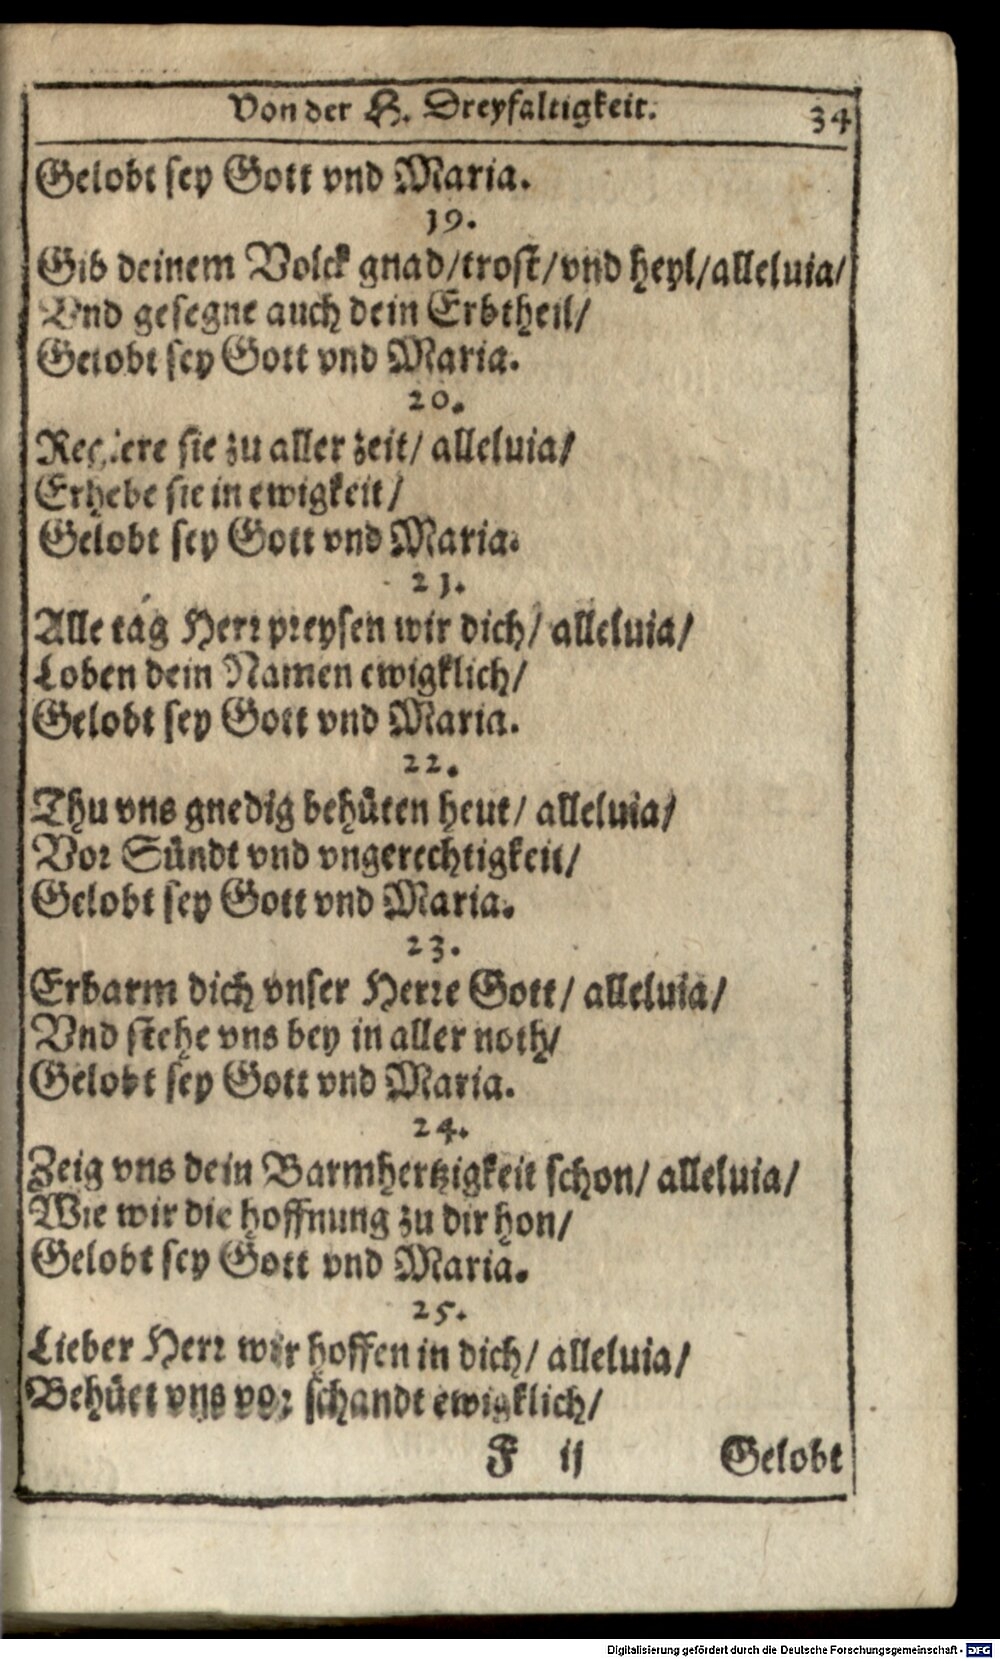 Von der H. Dreyfaltigkeit. 34
Gelobt sey Gott vnd Maria.
19.
Gib deinem Volck gnad/trost/vnd heyl/alleluia/
Vnd gesegne auch dein Erbtheil/
Gelobt sey Gott vnd Maria.
20.
Regiere sie zu aller zeit/ alleluia/
Erhebe sie in ewigkeit/
Gelobt sey Gott vnd Maria.
21.
Alle tág Herr preysen wir dich/ alleluia/
Loben dein Namen ewigklich/
Gelobt sey Gott vnd Maria.
22.
Thu vns gnedig behüten heut/ alleluia/
Vor Sündt vnd vngerechtigkeit/
Gelobt sey Gott vnd Maria.
23.
Erbarm dich vnser Herre Gott/ alleluia/
Vnd stehe vns bey in aller noth/
Gelobt sey Gott vnd Maria.
24.
Zeig vns dein Barmhertzigkeit schon/ alleluia/
Wie wir die hoffnung zu dir hon/
Gelobt sey Gott vnd Maria.
25.
Lieber Herr wir hoffen in dich/ alleluia/
Behüet vns vor schandt ewigklich/
F ij Gelobt
Digitalisierung gefördert durch die Deutsche Forschungsgemeinschaft - DFG